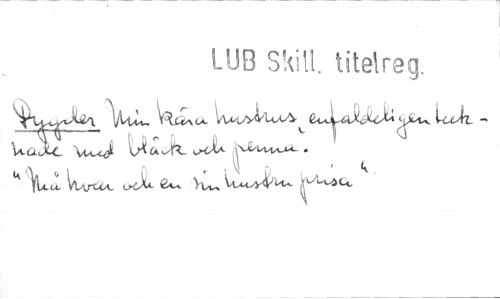 LUB Skill. titelreg.
Dygder Min kära hustrus, enfaldeligen teck-
nade med bläck och penna.
"Må hvar och en sin hustru prisa"